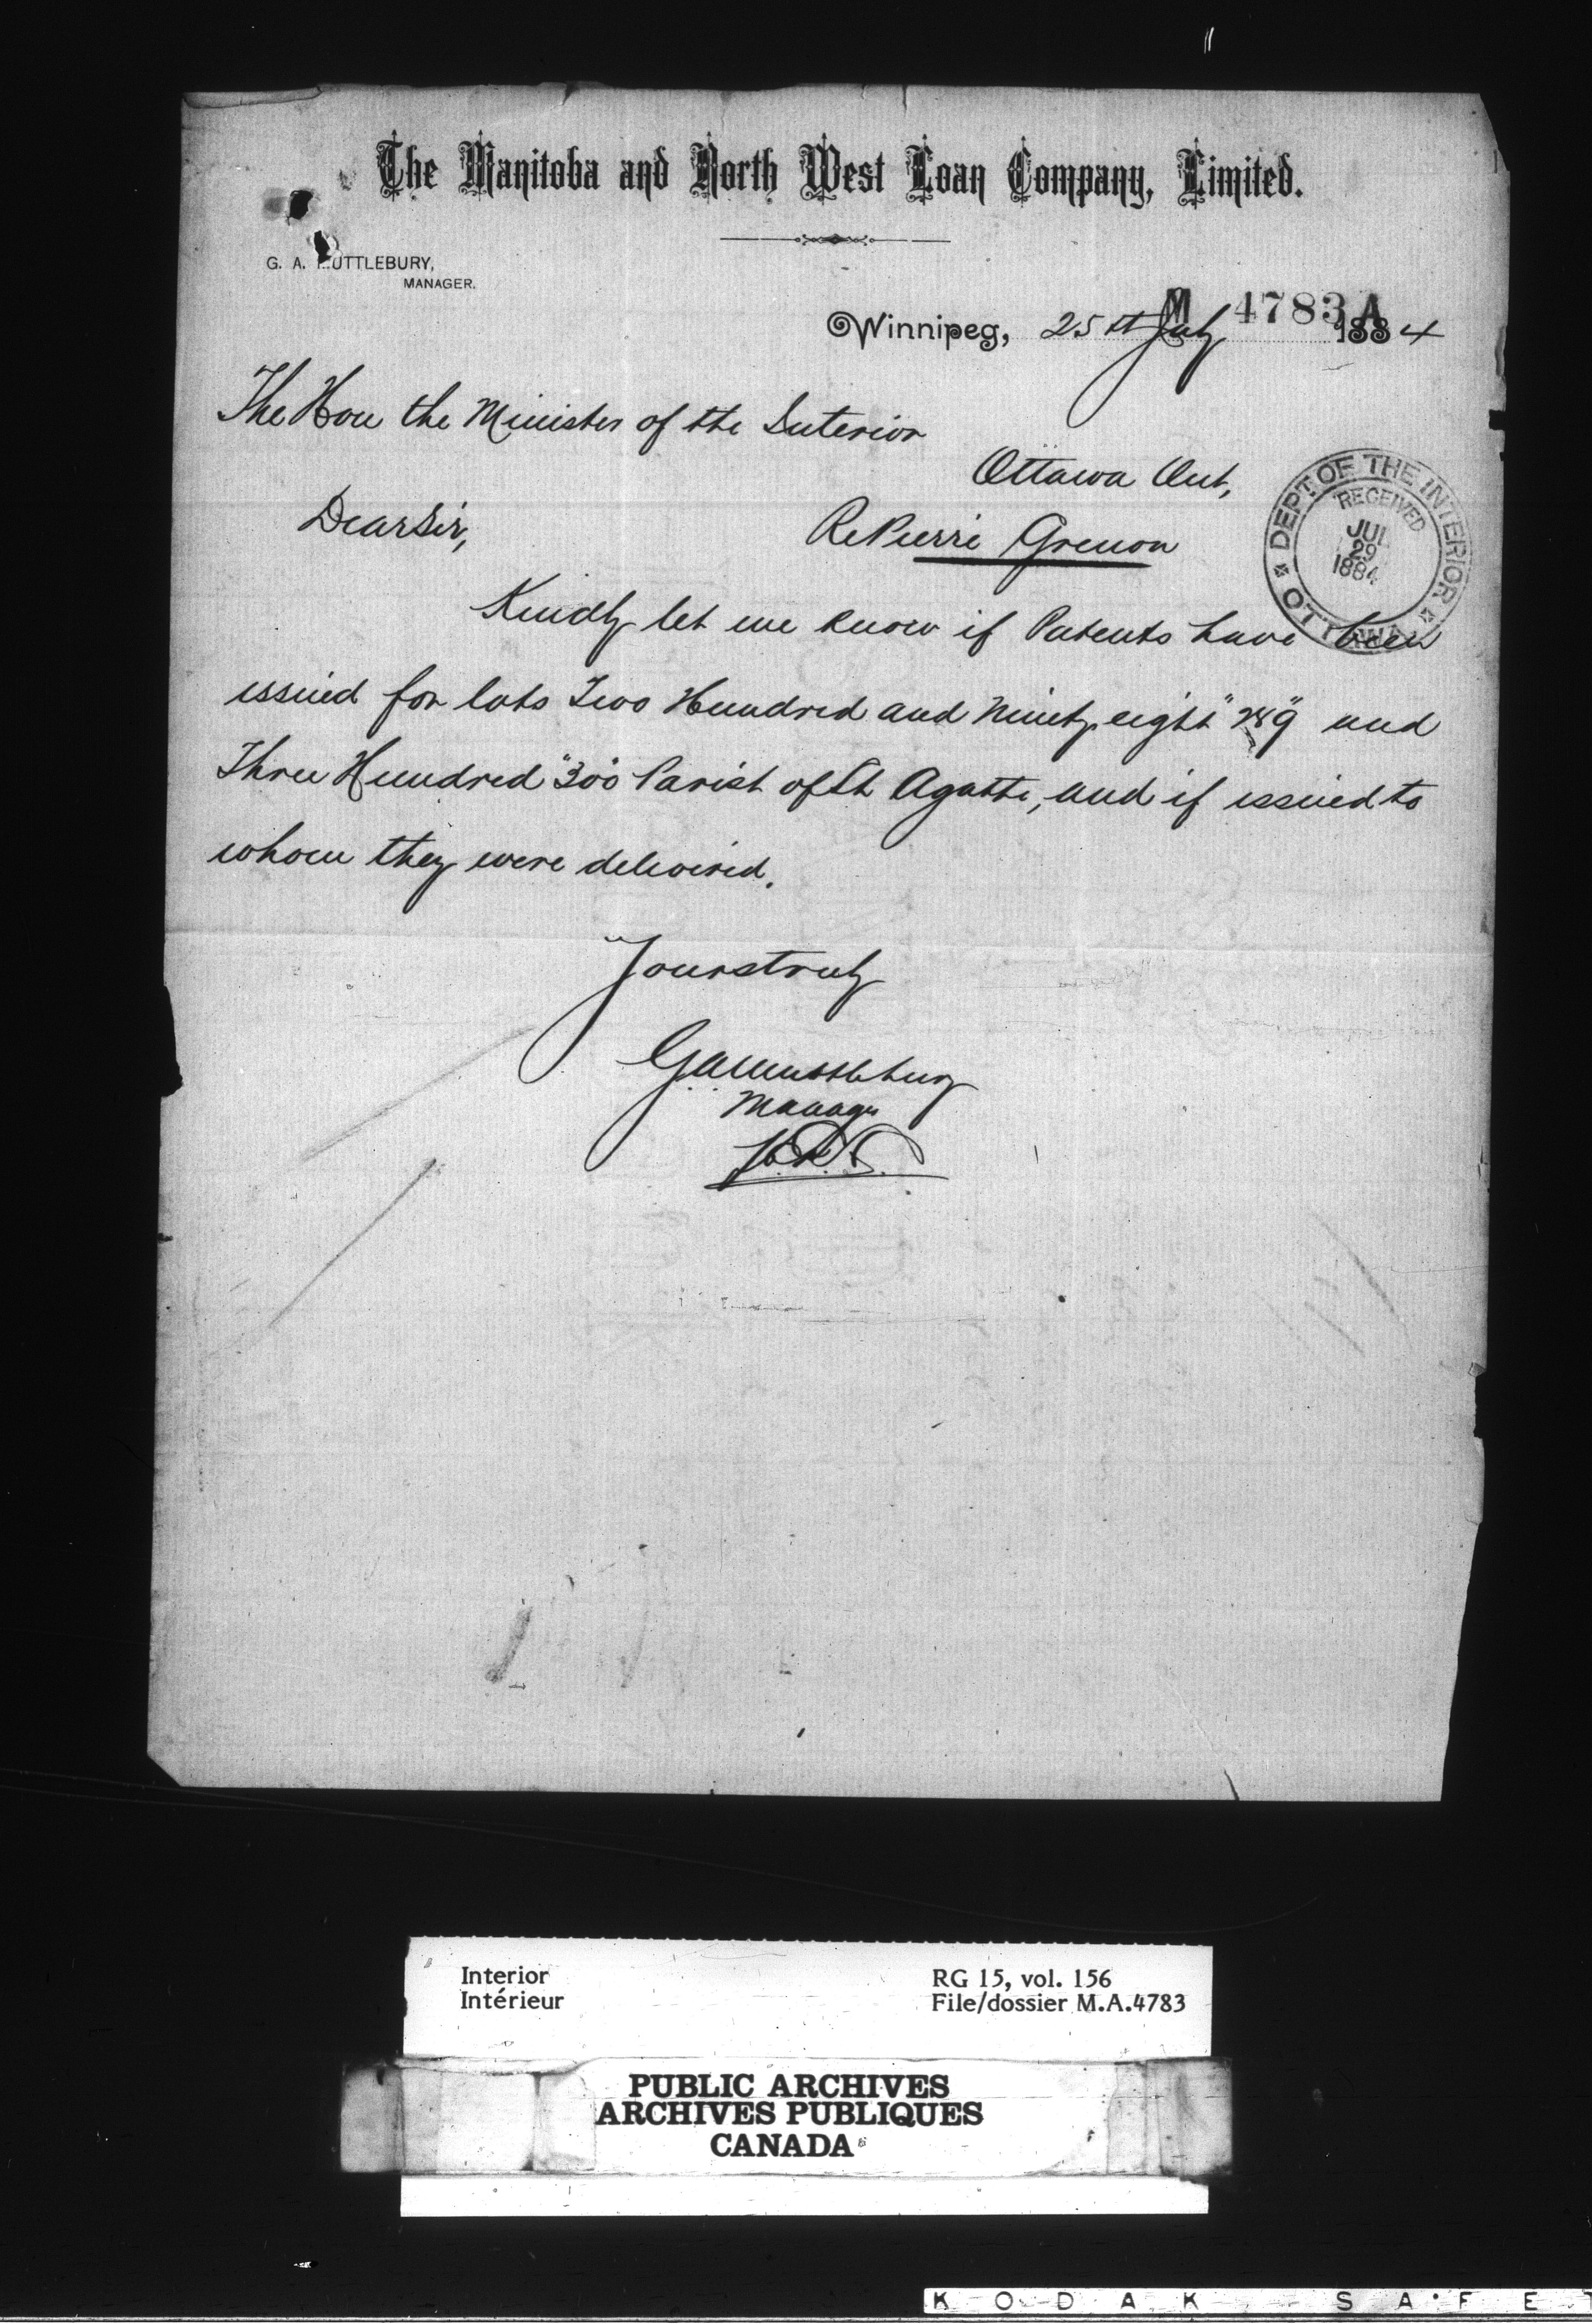 The Manitoba and North West Loan Company, Limited.
G. A. MUTTLEBURY,
MANAGER.
M 4783 A
Winnipeg, 25th July 1884
The Hon the Minister of the Interior
Ottawa Ont,
Dear Sir,
Re Pierre Grenon
DEPT OF THE INTERIOR
RECEIVED
JUL
29
1884
OTTAWA
Kindly let me know if Patents have been
issued for lots Two Hundred and Ninety eight and
Three Hundred "300" Parish of St Agathe, and if issued to
whom they were delivered.
Yours truly
G A Muttlebury
Manager
Interior
Intérieur
RG 15, vol. 156
File/dossier M.A.4783
PUBLIC ARCHIVES
ARCHIVES PUBLIQUES
CANADA
KODAK SAFE